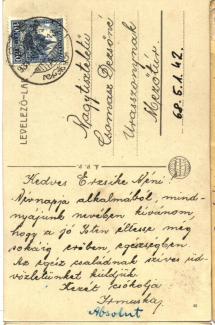 LEVELEZŐ-LA
Nagytiszteletű
Csomasz Dezsőné
Urasszonynak
Mezőtúr
68.5.1.42.
Kedves Erzsike Néni!
Névnapja alkalmából, mind-
nyájunk nevében kívánom,
hogy a jó Isten éltesse még
sokáig erőben, egészségben
Az egész családnak szíves üd-
vözletünket küldjük
Kezét csókolja
Absolut